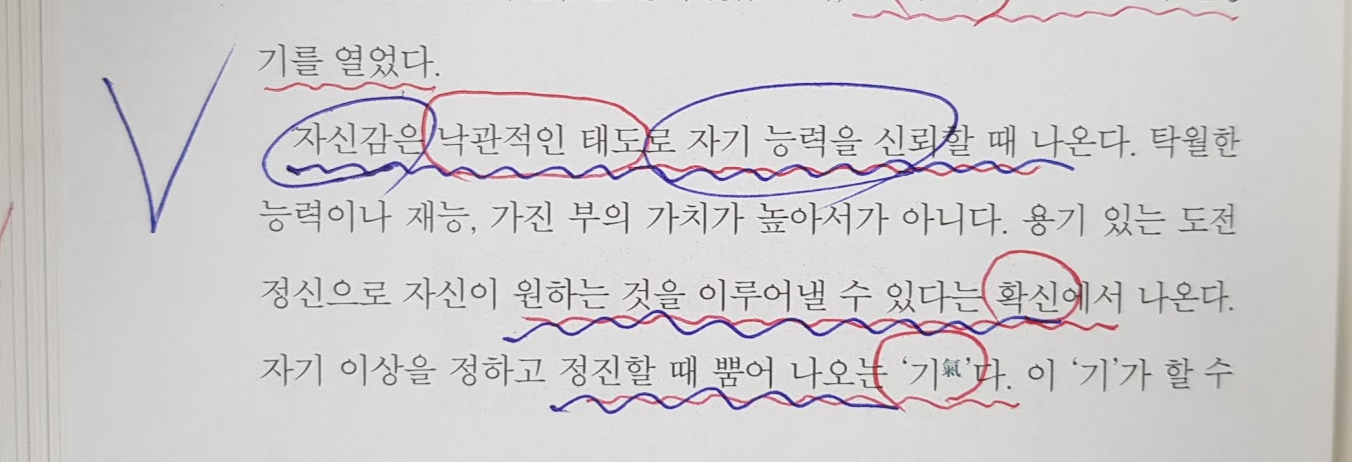 기를 열었다.
자신감은 낙관적인 태도로 자기 능력을 신뢰할 때 나온다. 탁월한
능력이나 재능, 가진 부의 가치가 높아서가 아니다. 용기 있는 도전
정신으로 자신이 원하는 것을 이루어낼 수 있다는 확신에서 나온다.
자기 이상을 정하고 정진할 때 뿜어 나오는 ‘기氣’다. 이 ‘기’가 할 수